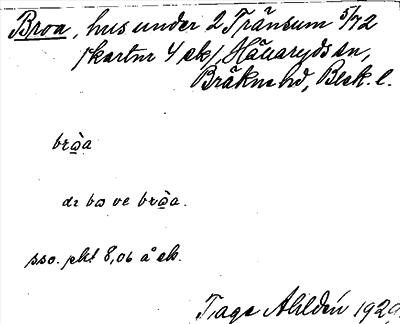 Broa, hus under 2 Tränsum 5/72
(kartnr 4 ek), Hällaryds sn,
Bräkne hd, Blek. l.
bròa
di bo ve bròa.
sso. pkt 8,06 å ek.
Tage Ahldén 1929.